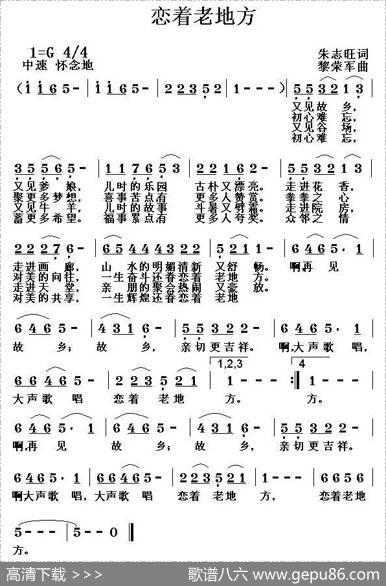 恋着老地方
1=G 4/4
中速 怀念地
朱志旺词
黎荣军曲
(i i i 6 5 - | i i 6 5 - | 2 2 3 5 2 | 1 - - -) | 5 5 3 2 1 3 |
又见故乡,
初心难忘,
又见谷场,
初心难忘,
3 5 5 6 5 - | 1 1 7 6 5 3 | 2 2 1 2 2 - | 5 5 3 2 1 3 |
又见爹娘, 儿时的乐园 古朴又漂亮。 走进花香,
聚更多梦想, 喜事苦点有 更多人赞赏。 拳拳之心
又见牛羊, 儿时的故事 走进院房,
蓄更多希望。 福事累点有 更多人夸奖。 众邻之情
2 2 2 7 6 - | 走进画廊, 山水的明媚清新 又舒畅。 啊,再见
对美的向往, 一生奋斗还眷恋着 老地方。
走进天堂, 亲朋的聚会热闹 又豪放。
对美的共享, 一生辉煌还眷恋着 老地
6 4 6 5 - | 4 3 1 6 - | 5 5 3 2 2 - | 6 4 6 5 · 1 |
故乡; 故乡, 亲切更吉祥。 啊,大声歌唱,
6 4 6 5 - | 2 2 3 5 2 1 | 1 - - - :| 1 - - - |
1,2,3
4
大声歌唱 恋着老地方。 方。
6 4 6 5 · 1 | 6 4 6 5 - | 4 3 1 6 - | 5 5 3 2 2 - |
啊,再见 故乡; 故乡, 亲切更吉祥。
6 4 6 5 · 1 | 6 4 6 5 - | 2 2 3 5 2 1 | 1 - - - | 6 6 5 6 |
啊,大声歌唱, 大声歌唱 恋着老地方, 恋着老地
5 - - - | 5 - - 0 ‖
方。
高清下载 >>>
歌谱八六 www.gepu86.com